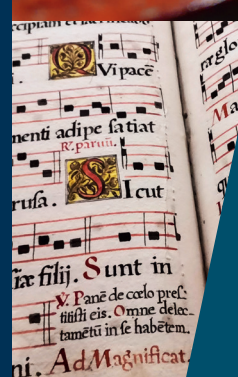 Qvi pacē
menti adipe satiat
℟. paruū.
rusa. Sicut
iæ filij. Sunt in
℣. Panē de cœlo pres̄-
titisti eis. Omne delec-
tamētū in se habētem.
ni. Ad Magnificat.